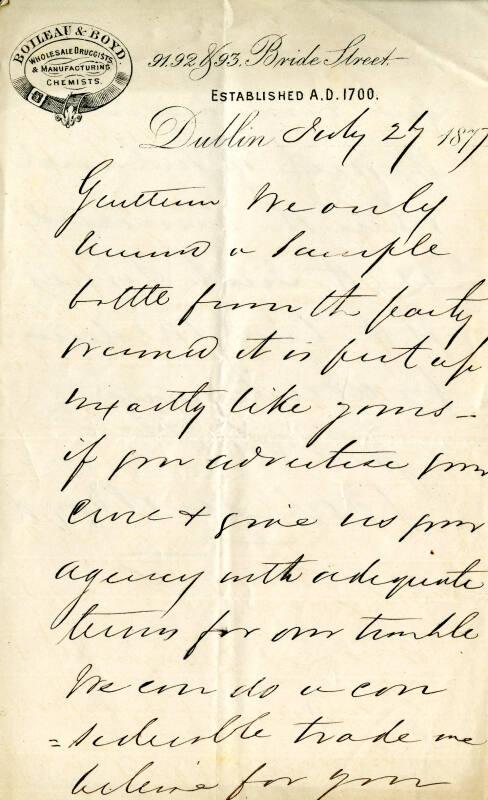 BOILEAU & BOYD.
WHOLESALE DRUGGISTS
& MANUFACTURING
CHEMISTS.
91.92 & 93. Bride Street.
ESTABLISHED A.D. 1700.
Dublin July 27 1877
Gentlemen We only
received a Sample
bottle from the party
named it is put up
exactly like yours –
if you advertise your
cure & give us your
agency with adequate
terms for our trouble
We can do a con
=siderable trade we
believe for your